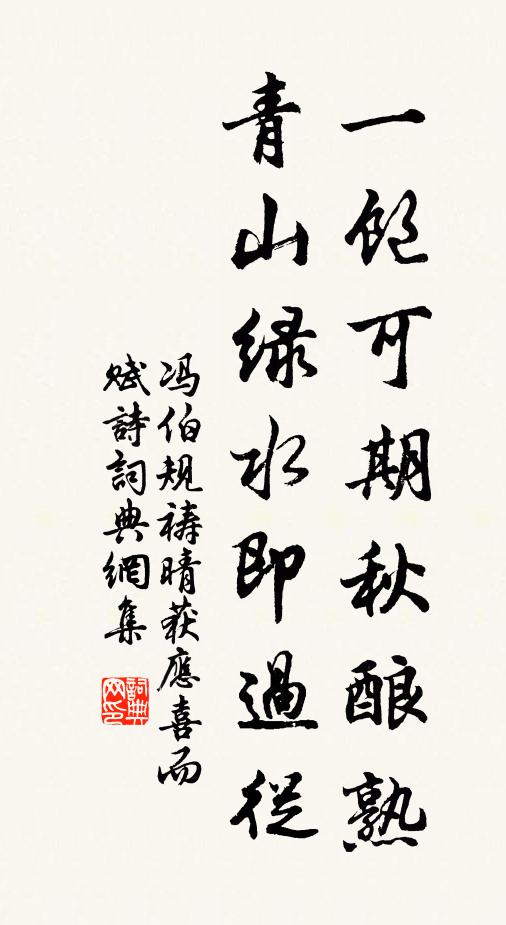 一飽可期秋酿熟
青山绿水即過從
冯伯規祷晴获應喜而
赋詩詞典網集
詞典网印